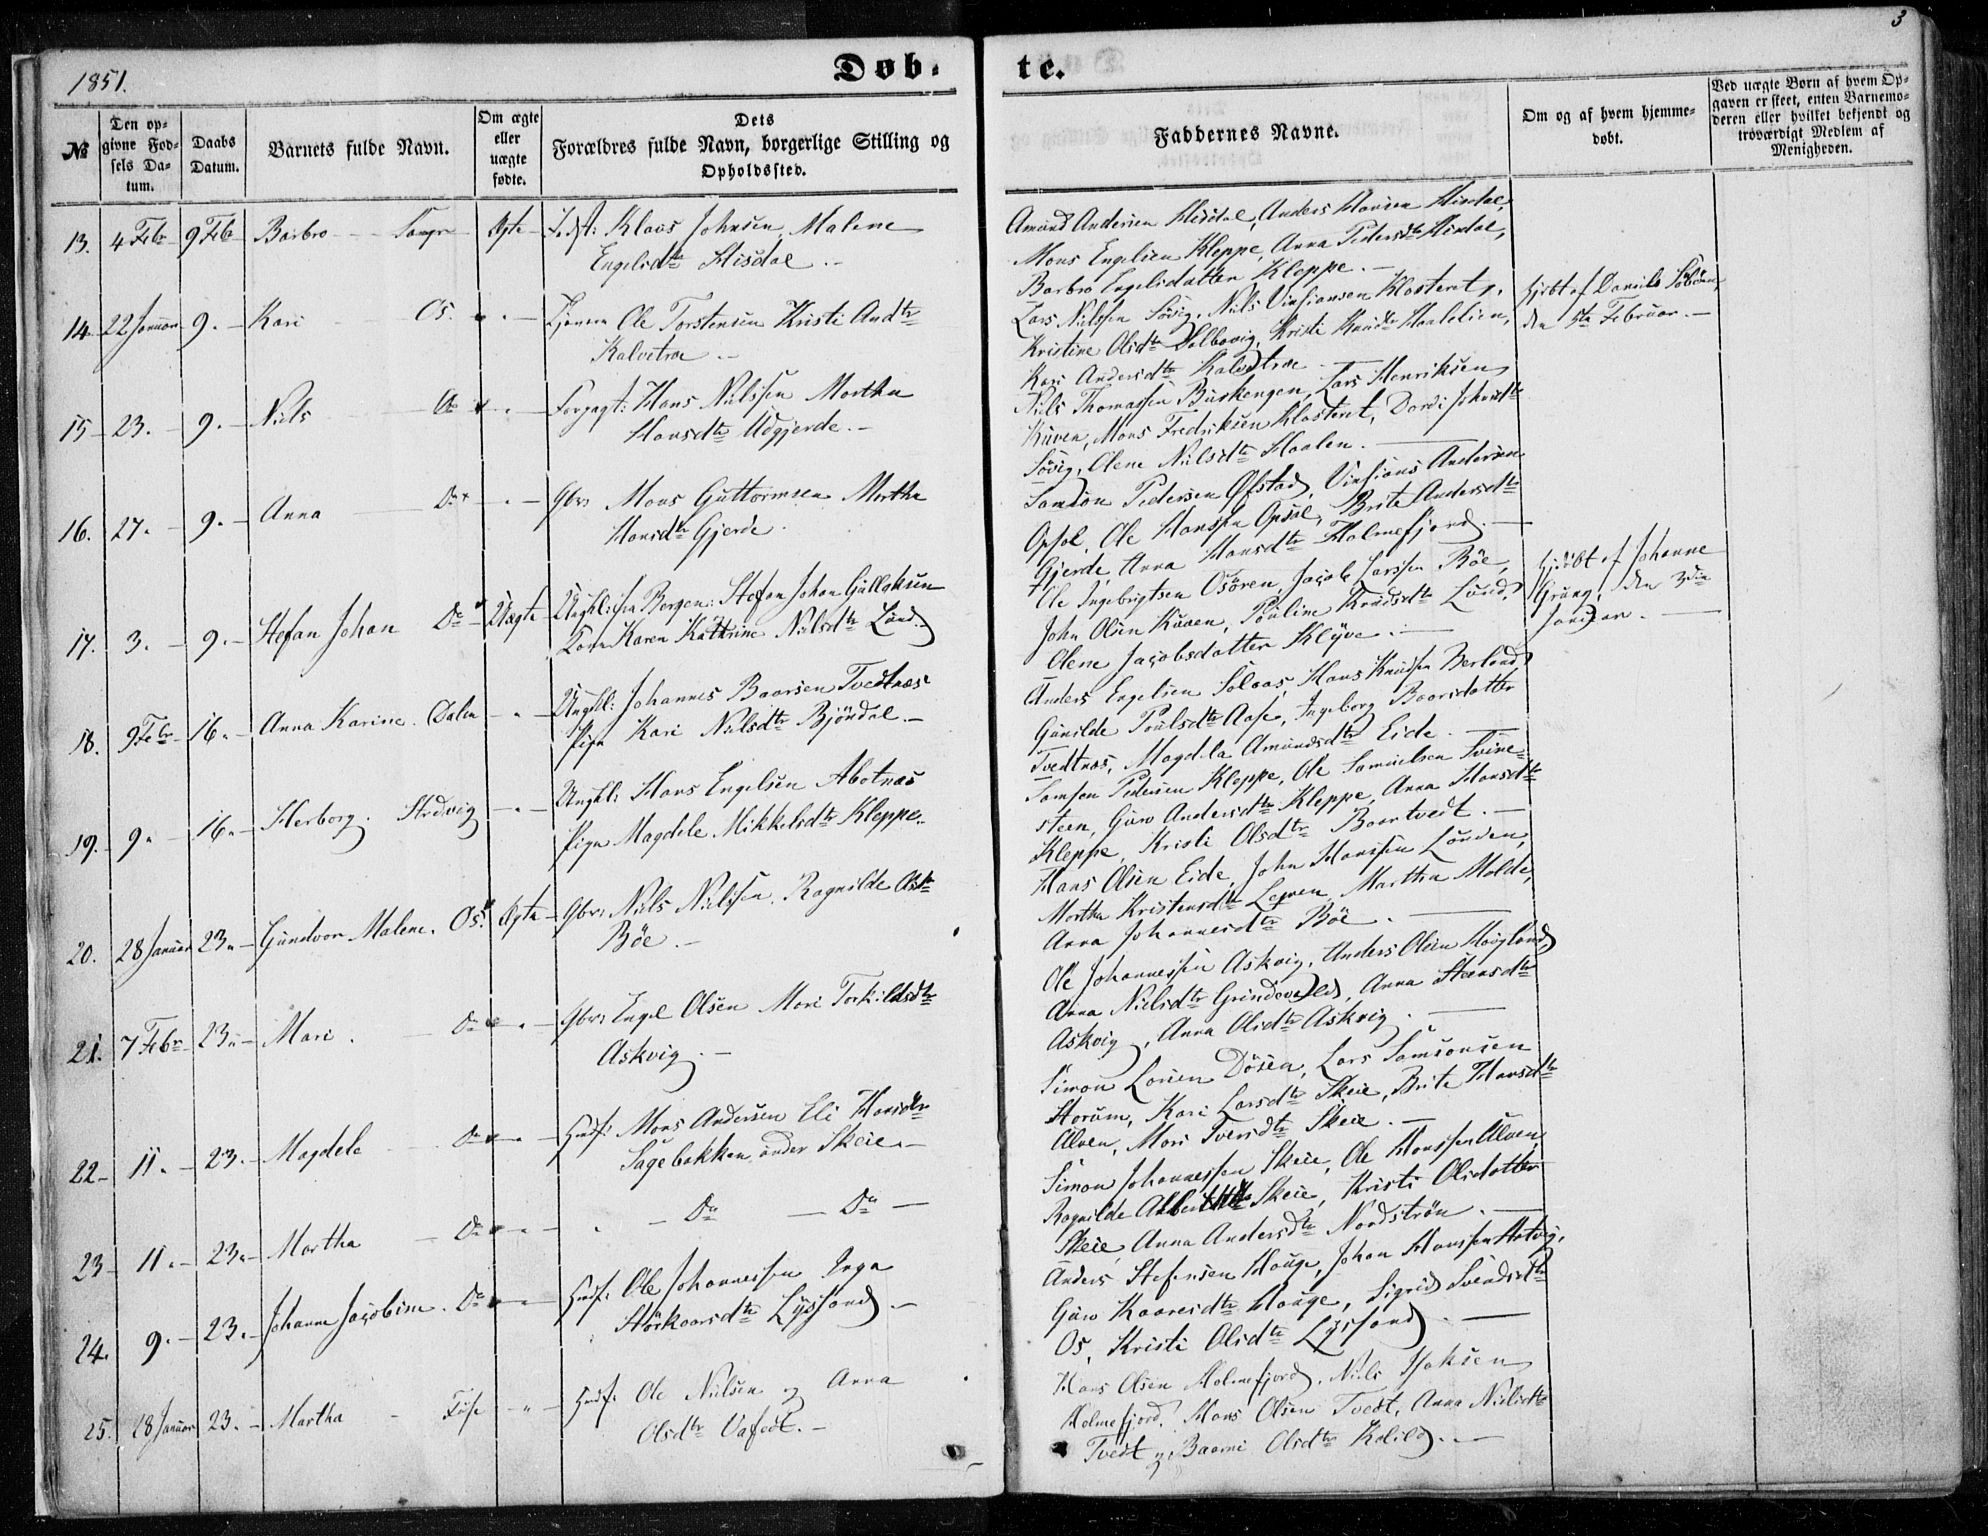 1851.
Døb-
te.
3
№
Den op-
givne Fød-
sels Da-
tum.
Daabs
Datum.
Barnets fulde Navn.
Om ægte
eller
uægte
fødte.
Dets
Forældres fulde Navn, borgerlige Stilling og
Opholdssted.
Faddernes Navne.
Om og af hvem hjemme-
døbt.
Ved uægte Børn af hvem Op-
gaven er skeet, enten Barnemo-
deren eller hvilket bekjendt og
troværdigt Medlem af
Menigheden.
13. 4 Febr 9 Feb Barbro Ægte Klaas Johnsen, Malene
Engelsdtr Hisdal.
Amund Andersen Hisdal, Anders Hansen Hisdal,
Mons Engelsen Kleppe, Anna Pedersdtr Hisdal,
Barbro Engelsdatter Kleppe.
14. 22 Januar 9. Kari Os. Ole Torstensen Kristi Anddtr
Kalvetræ
Lars Nilssen Søvig, Nils Vinsiansen Klosteret,
Kristine Olsdtr Solbovig, Kristi Knudsdtr
Kari Andersdtr Kalvetræ
Hjdbt af Daniels
den 5te Februar.
15. 23. 9. Niels Do Forpagt: Hans Nilssen Martha
Hansdtr Udgjerde.
Niels Thomassen Buskengen, Lars Henriksen
Kuven, Mons Fredriksen Klosteret, Dordi Johnsdtr
Søvig, Olene Nilsdtr Haalen.
16. 27. 9. Anna Do Gbr: Mons Guttormsen Martha
Hansdtr Gjerde.
Samson Pedersen Øfstad, Vinsians Andersen
Opsal, Ole Hanssen Opsal, Brite Andersdtr
Gjerde Anna Hansdtr Holmefjord.
17. 3. 9. Stefan Johan Do Uægte Ungkl: fra Bergen: Stefan Johan Gullaksen
Karen Kathrine Nielsdtr Lund.
Ole Ingebrigtsen Osøren, Jacob Larssen Bøe,
John Olsen Kuven, Pauline Knudsdtr Lund,
Olene Jacobsdatter Klyve.
Hjdøbt af Johanne
Grung, den 3die
Januar.
18. 9 Febr 16. Anna Karine. Dalen Ungkl: Johannes Baarsen Tvedtnæs
Pige Kari Nilsdtr Bjøndal.
Anders Engelsen Solaas, Hans Knudsen Berland
Gunilde Poulsdtr Aase, Ingeborg Baarsdatter
Tvedtnæs, Magdela Amundsdtr Eide.
19. 9. 16. Herborg. Ungkl: Hans Engelsen Abotnæs
Pige Magdele Mikkelsdtr Kleppe.
Samson Pedersen Kleppe, Ole Samuelsen Tvine-
steen, Guro Andersdtr Kleppe, Anna Hansdtr
Kleppe, Kristi Olsdtr Baartvedt.
20. 28 Januar 23. Gundvor Malene. Os. Ægte Gbr: Nils Nielsen, Ragnilde Olsdtr
Bøe.
Hans Olsen Eide, John Hanssen Lunden,
Martha Kristensdtr Lepsen, Martha Molde,
Anna Johannesdtr Bøe.
21. 7 Febr 23. Mari. Do Gbr: Engel Olsen Mari Torkildsdtr
Askvig.
Ole Johannessen Askvig, Anders Olsen Haugland
Anna Nielsdtr Grindevold, Anna Hansdtr
Askvig, Anna Olsdtr Askvig.
22. 11. 23. Magdele Do Hmdf: Mons Andersen Eli Hansdtr
Sagebakken under Skeie.
Simon Larsen Døsen, Lars Samsonsen
Storum, Kari Larsdtr Skeie, Brite Hansdtr
Ulven, Mari Iversdtr Skeie.
23. 11. 23. Martha Do Do Do
Simon Johannessen Skeie, Ole Hanssen Ulven
Ragnilde Skeie, Kristi Olsdatter
Skeie, Anna Andersdtr Nordstrøn.
24. 9. 23. Johanne Jacobine. Do Hmdf: Ole Johannessen Inga
Størkaarsdtr Lysfand.
Anders Stefensen Houge, Johan Hanssen Hatvig,
Guro Kaaresdtr Houge, Sigrid Svendsdtr
Os, Kristi Olsdtr Lysfand.
25. 28 Januar 23. Martha Fuse Hmdf: Ole Nielsen og Anna
Olsdtr Vafedt.
Hans Olsen Holmefjord, Niels Isaksen
Holmefjord, Hans Olsen Tvedt, Anna Nielsdtr
Tvedt og Baarni Olsdtr Kolild.